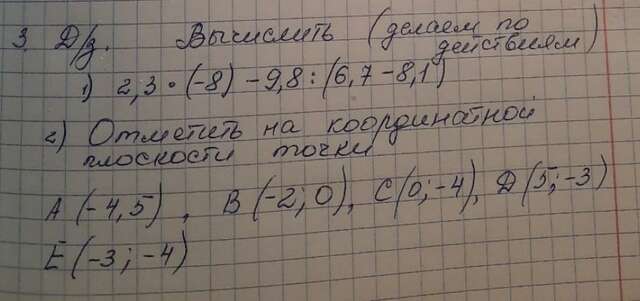 3. Д/з. Вычислить (делаем по
действиям)
1) 2,3 · (-8) - 9,8 : (6,7 - 8,1)
2) Отметить на координатной
плоскости точки
A (-4,5), B (-2; 0), C (0; -4), D (5; -3)
E (-3; -4)